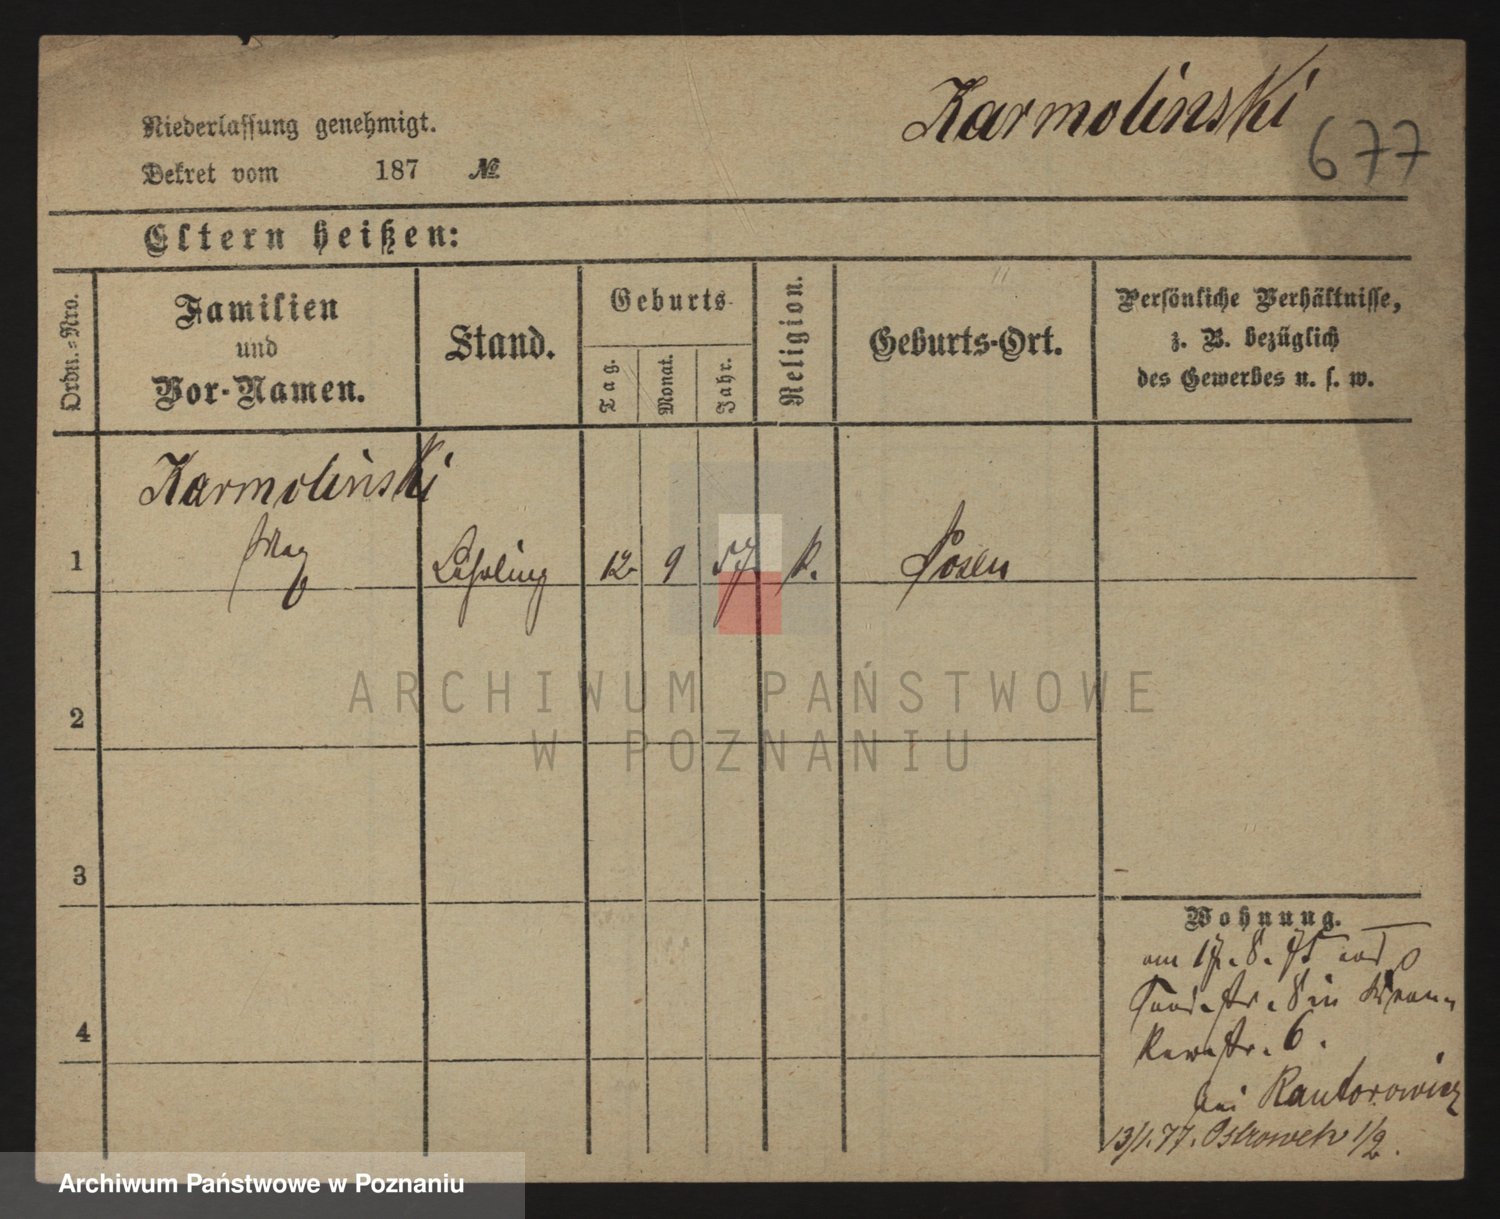 Karmolinski
677
Niederlassung genehmigt.
Dekret vom 187 №
Eltern heißen:
Ordn.-Nro.
Familien
und
Vor-Namen.
Stand.
Geburts-
Tag.
Monat.
Jahr.
Religion.
Geburts-Ort.
Persönliche Verhältnisse,
z. B. bezüglich
des Gewerbes u. s. w.
Karmolinski
1 Max Lehrling 12. 9 57. k. Posen
2
3
4
ARCHIWUM PAŃSTWOWE
W POZNANIU
Wohnung.
am 17. 8. 75
8 in
str. 6.
bei Kantorowicz
13/1. 77. Ostrowek 1/2.
Archiwum Państwowe w Poznaniu